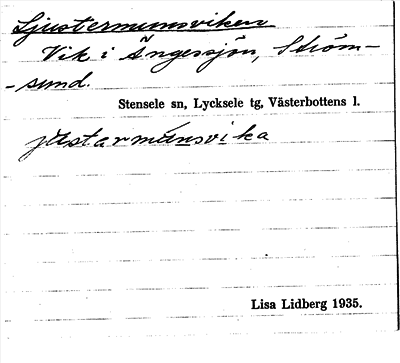 Ljustermunsviken
Vik i Ängessjön, Ström-
- sund.
Stensele sn, Lycksele tg, Västerbottens l.
jùstarmúnsvika
Lisa Lidberg 1935.